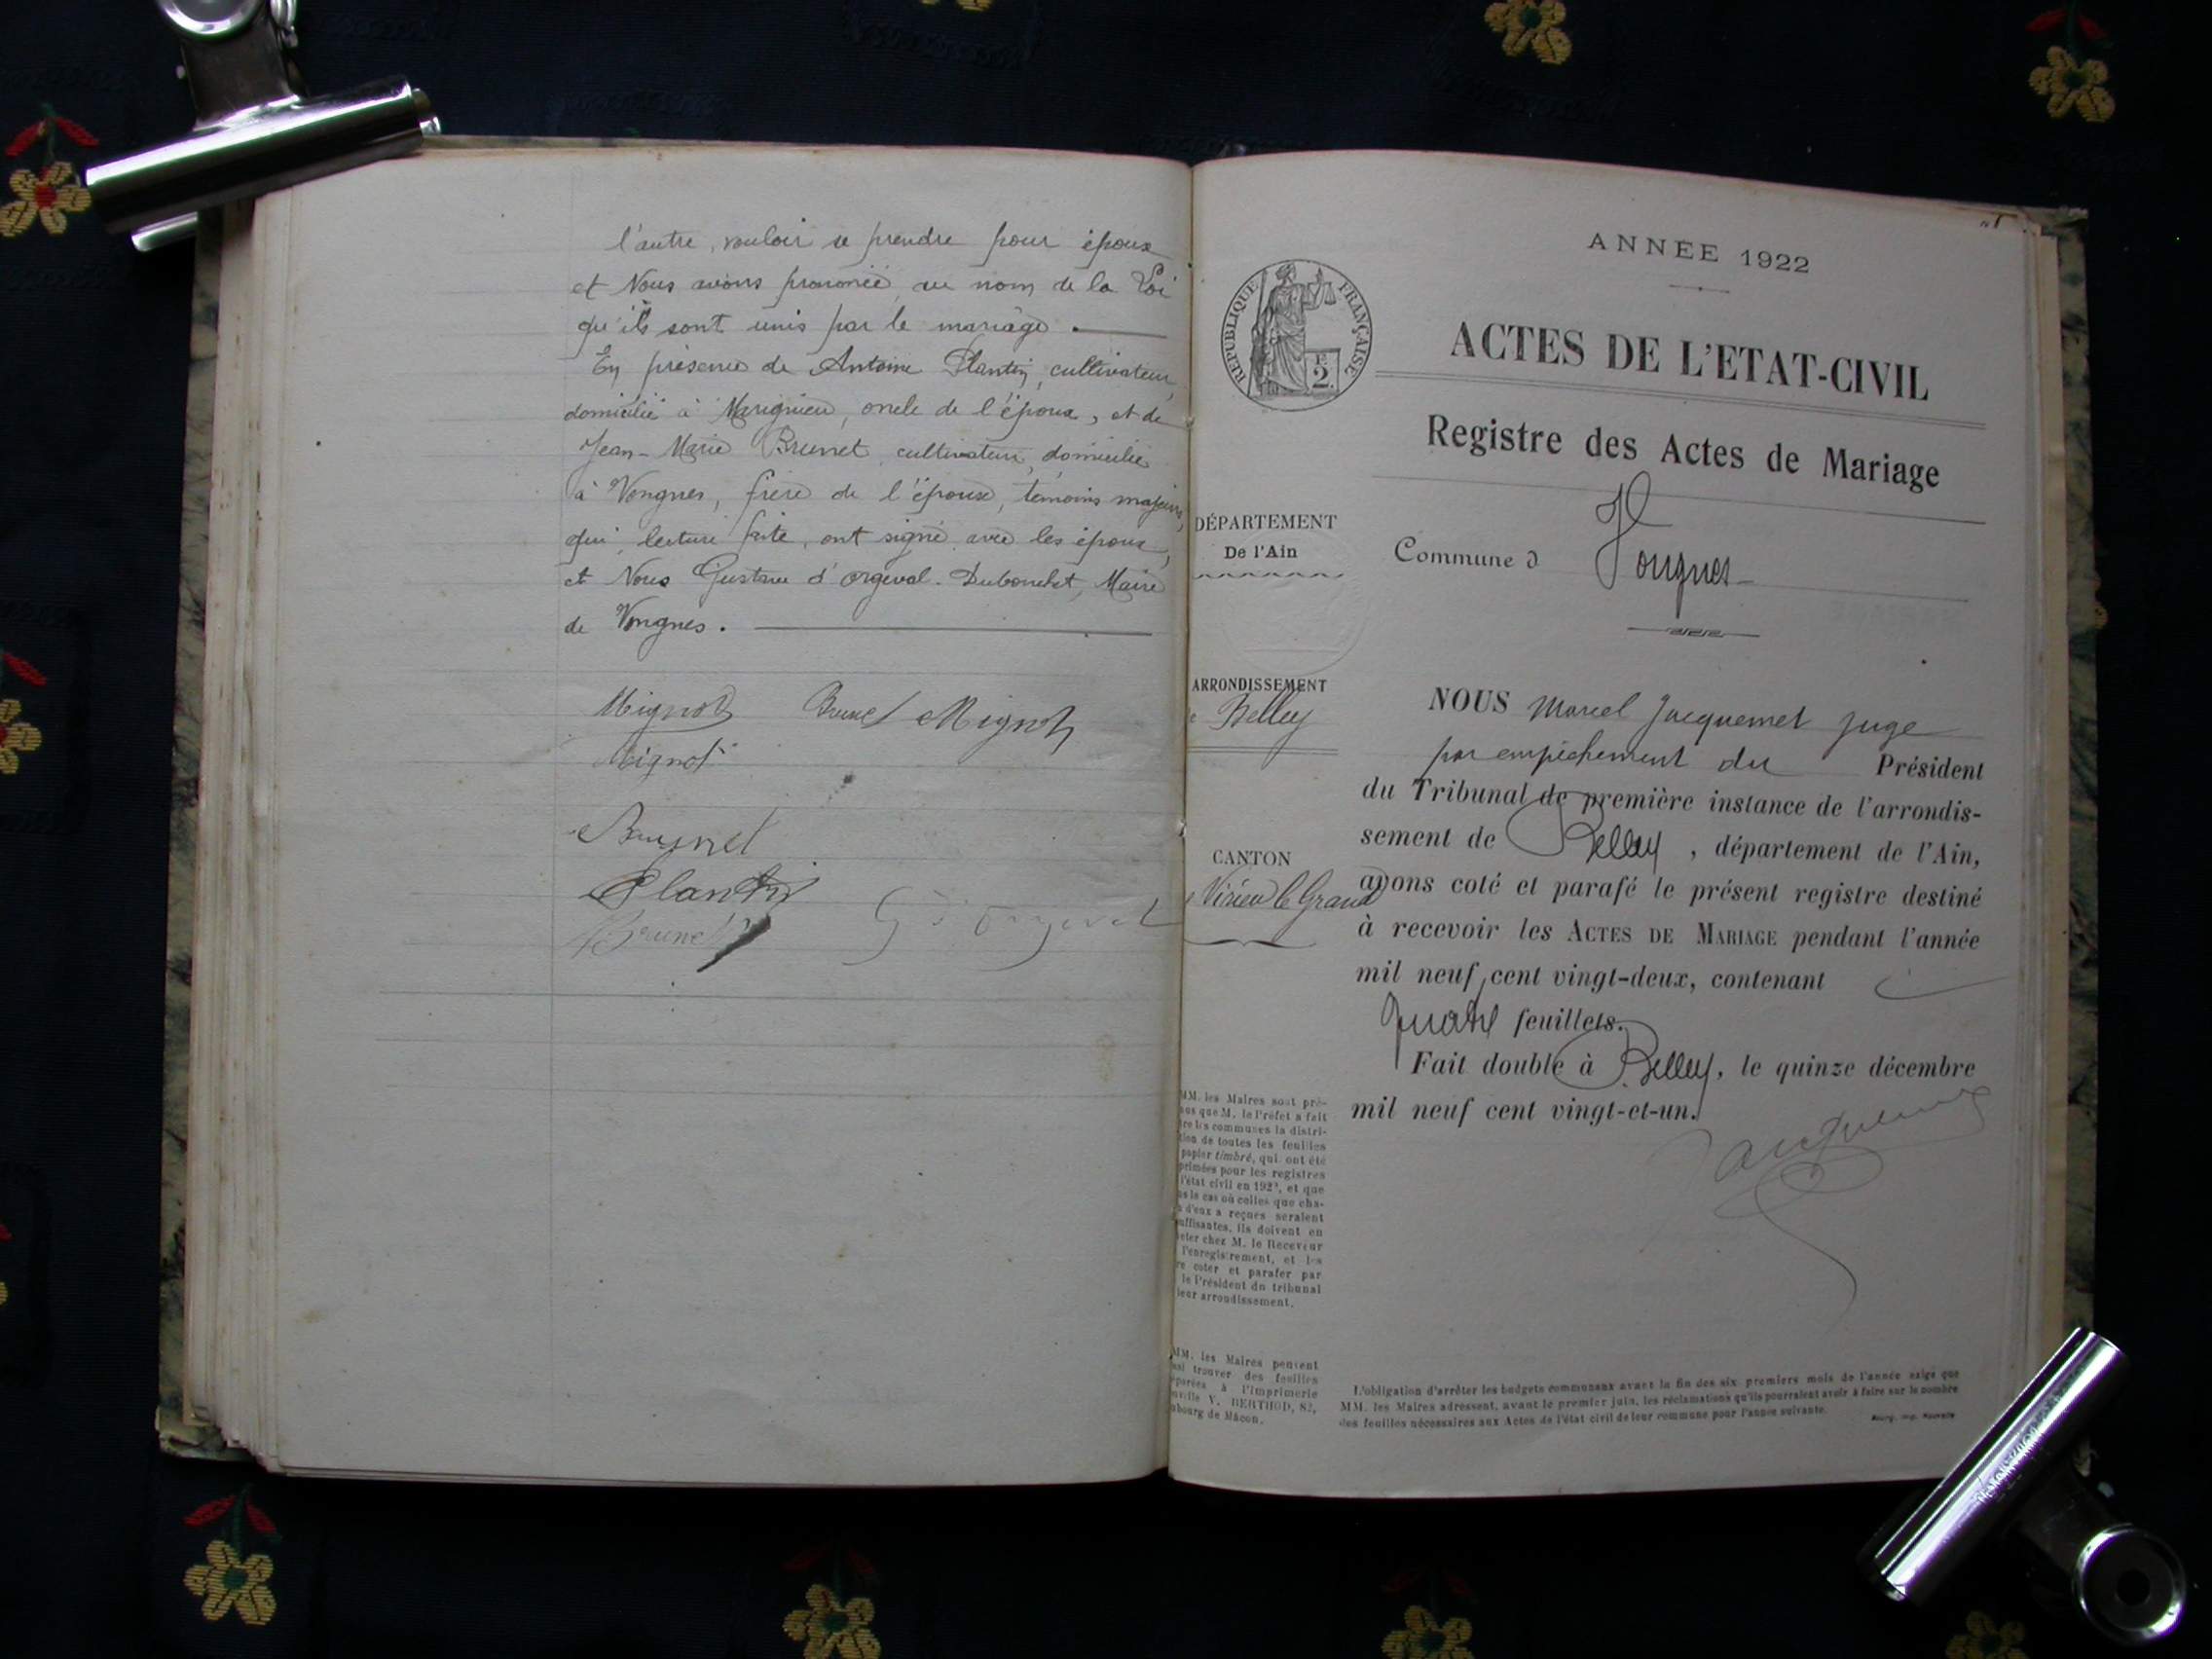 l'autre, vouloir se prendre pour époux
et Nous avons prononcé, au nom de la Loi
qu'ils sont unis par le mariage.
En présence de Antoine Plantin, cultivateur,
domicilié à Marignieu, oncle de l'époux, et de
Jean-Marie Brunet, cultivateur, domicilié
à Vongnes, frère de l'épouse, témoins majeurs,
qui, lecture faite, ont signé avec les époux,
et Nous Gustave d'Orgeval-Dubouchet, Maire
de Vongnes.
Mignot Brunet Mignot
Mignot
Brunet
Plantin
Brunet G d'Orgeval
ANNÉE 1922
RÉPUBLIQUE FRANÇAISE
2
ACTES DE L'ETAT-CIVIL
Registre des Actes de Mariage
DÉPARTEMENT
De l'Ain
Commune d Vongnes
ARRONDISSEMENT
e Belley
CANTON
Virieu le Grand
NOUS Marcel Jacquemet Juge
par empêchement du Président
du Tribunal de première instance de l'arrondis-
sement de Belley, département de l'Ain,
avons coté et parafé le présent registre destiné
à recevoir les ACTES DE MARIAGE pendant l'année
mil neuf cent vingt-deux, contenant
quatre feuillets.
Fait double à Belley, le quinze décembre
mil neuf cent vingt-et-un.
Jacquemet
MM. les Maires sont pré-
nus que M. le Préfet a fait
re les communes la distri-
tion de toutes les feuilles
papier timbré, qui ont été
primées pour les registres
l'état civil en 192, et que
ns le cas où celles que cha-
n d'eux a reçues seraient
uffisantes, ils doivent en
eter chez M. le Receveur
l'enregistrement, et les
re coter et parafer par
le Président du tribunal
leur arrondissement.
MM. les Maires peuvent
ssi trouver des feuilles
parées à l'Imprimerie
V. BERTHOD, 82,
bourg de Mâcon.
L'obligation d'arrêter les budgets communaux avant la fin des six premiers mois de l'année exige que
MM. les Maires adressent, avant le premier juin, les réclamations qu'ils pourraient avoir à faire sur le nombre
des feuilles nécessaires aux Actes de l'état civil de leur commune pour l'année suivante.